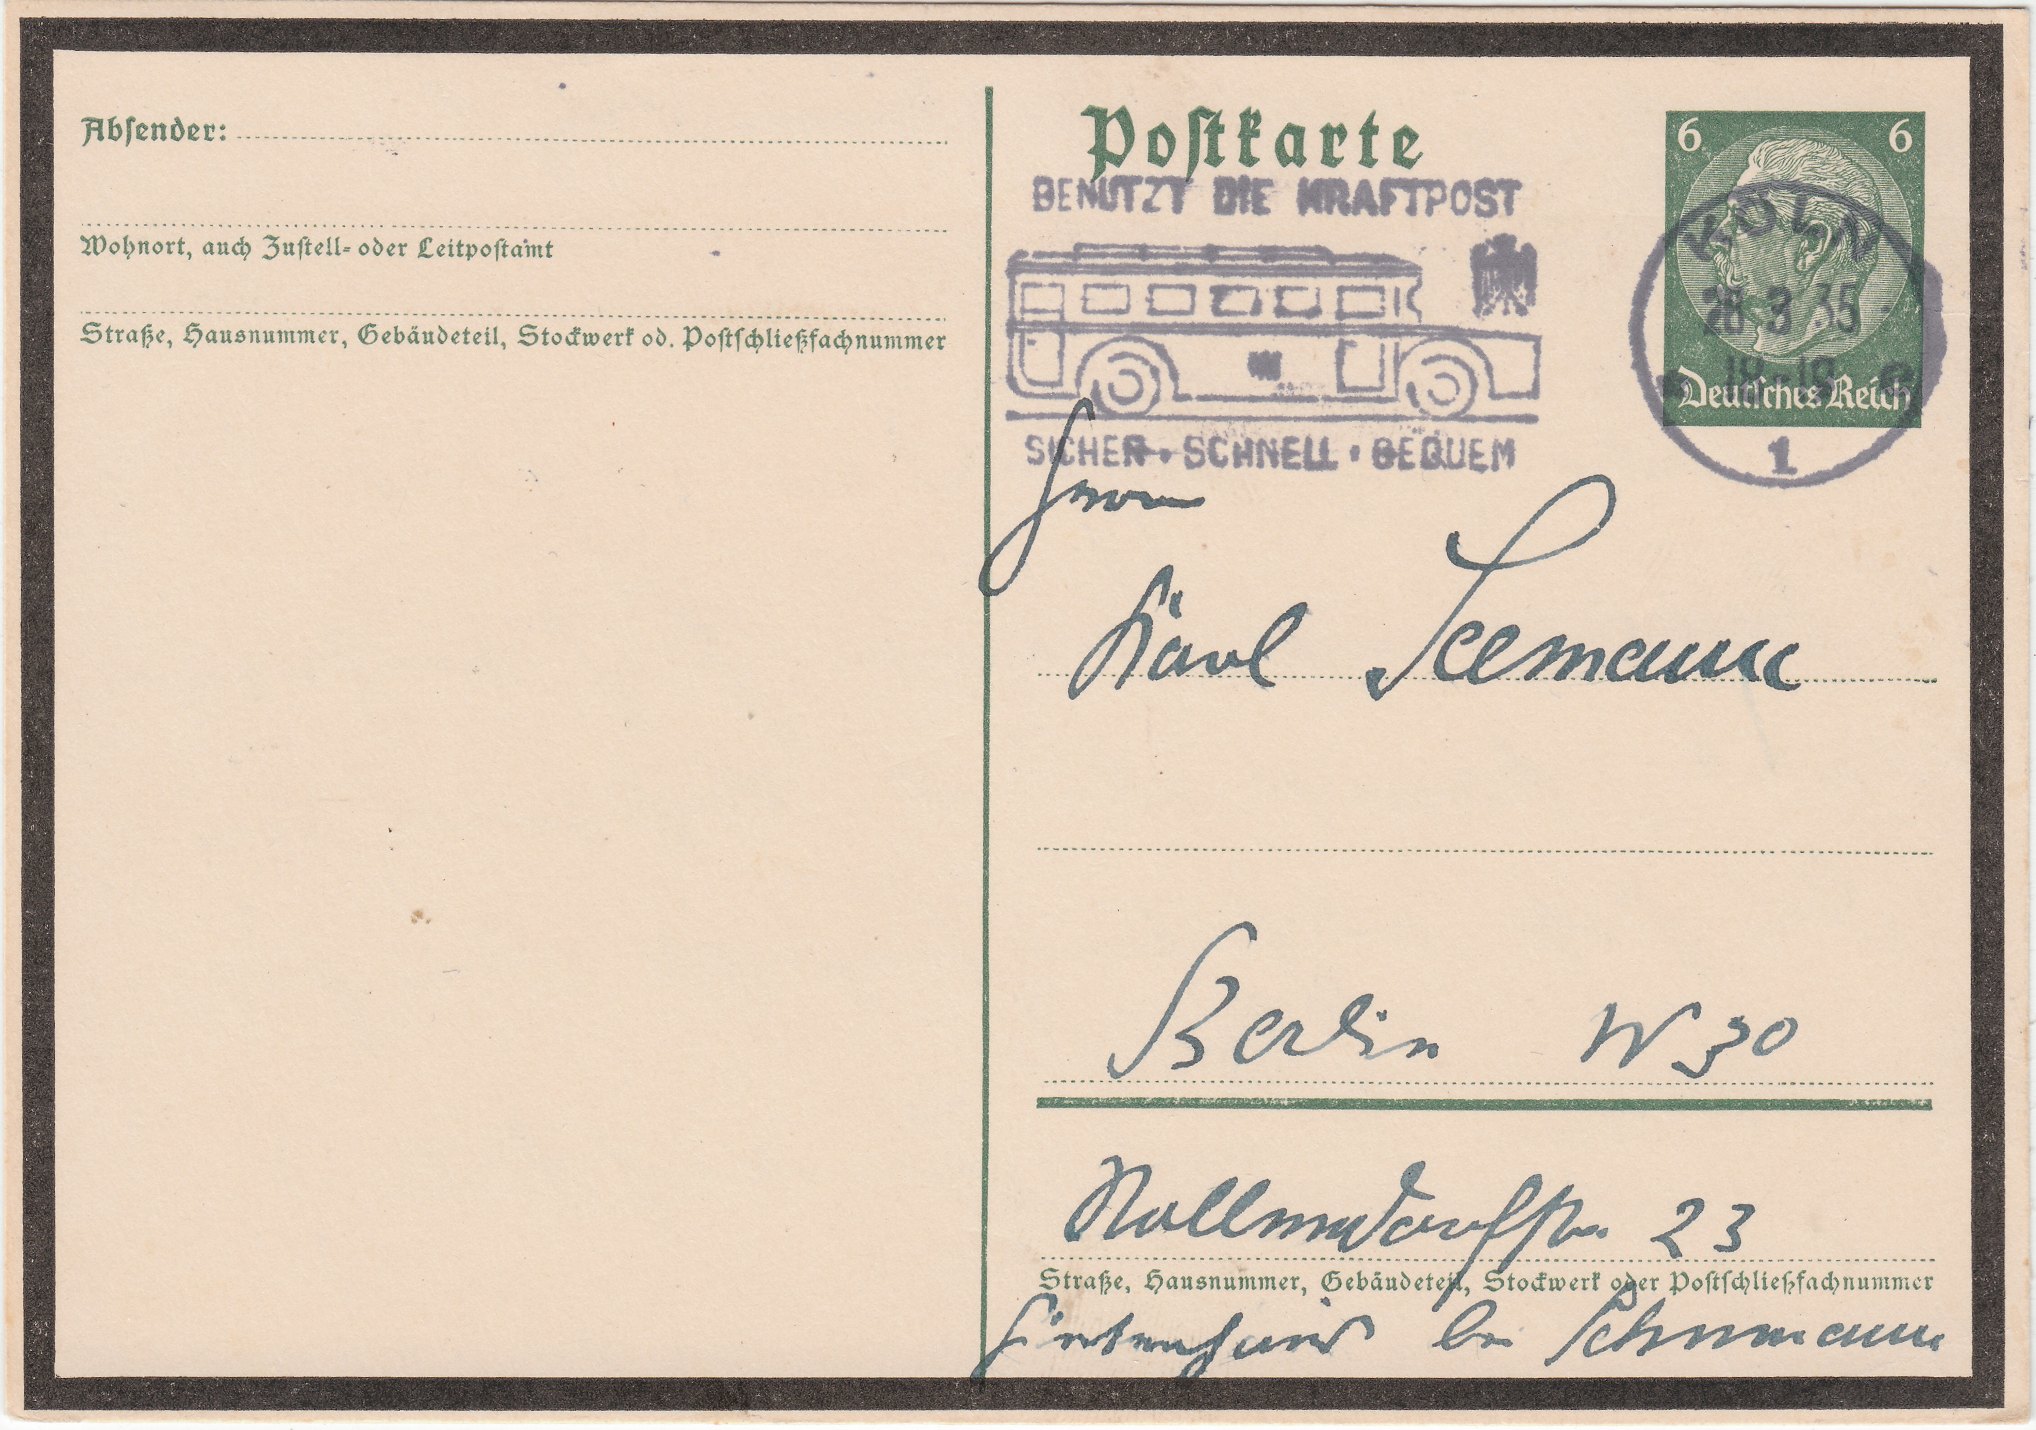 Absender:
Wohnort, auch Zustell- oder Leitpostamt
Straße, Hausnummer, Gebäudeteil, Stockwerk od. Postschließfachnummer
Postkarte
BENUTZT DIE KRAFTPOST
SICHER • SCHNELL • BEQUEM
6 6
Deutsches Reich
KÖLN
28 3 35
18-19
1
Herrn
Karl Seemann
Berlin W 30
Nollendorfstr. 23
Straße, Hausnummer, Gebäudeteil, Stockwerk oder Postschließfachnummer
Gartenhaus bei Schumann